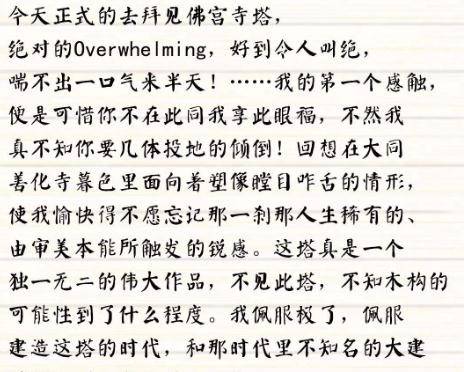 今天正式的去拜见佛宫寺塔，
绝对的Overwhelming，好到令人叫绝，
喘不出一口气来半天！……我的第一个感触，
便是可惜你不在此同我享此眼福，不然我
真不知你要几体投地的倾倒！回想在大同
善化寺暮色里面向着塑像瞠目咋舌的情形，
使我愉快得不愿忘记那一刹那人生稀有的、
由审美本能所触发的锐感。这塔真是一个
独一无二的伟大作品，不见此塔，不知木构的
可能性到了什么程度。我佩服极了，佩服
建造这塔的时代，和那时代里不知名的大建